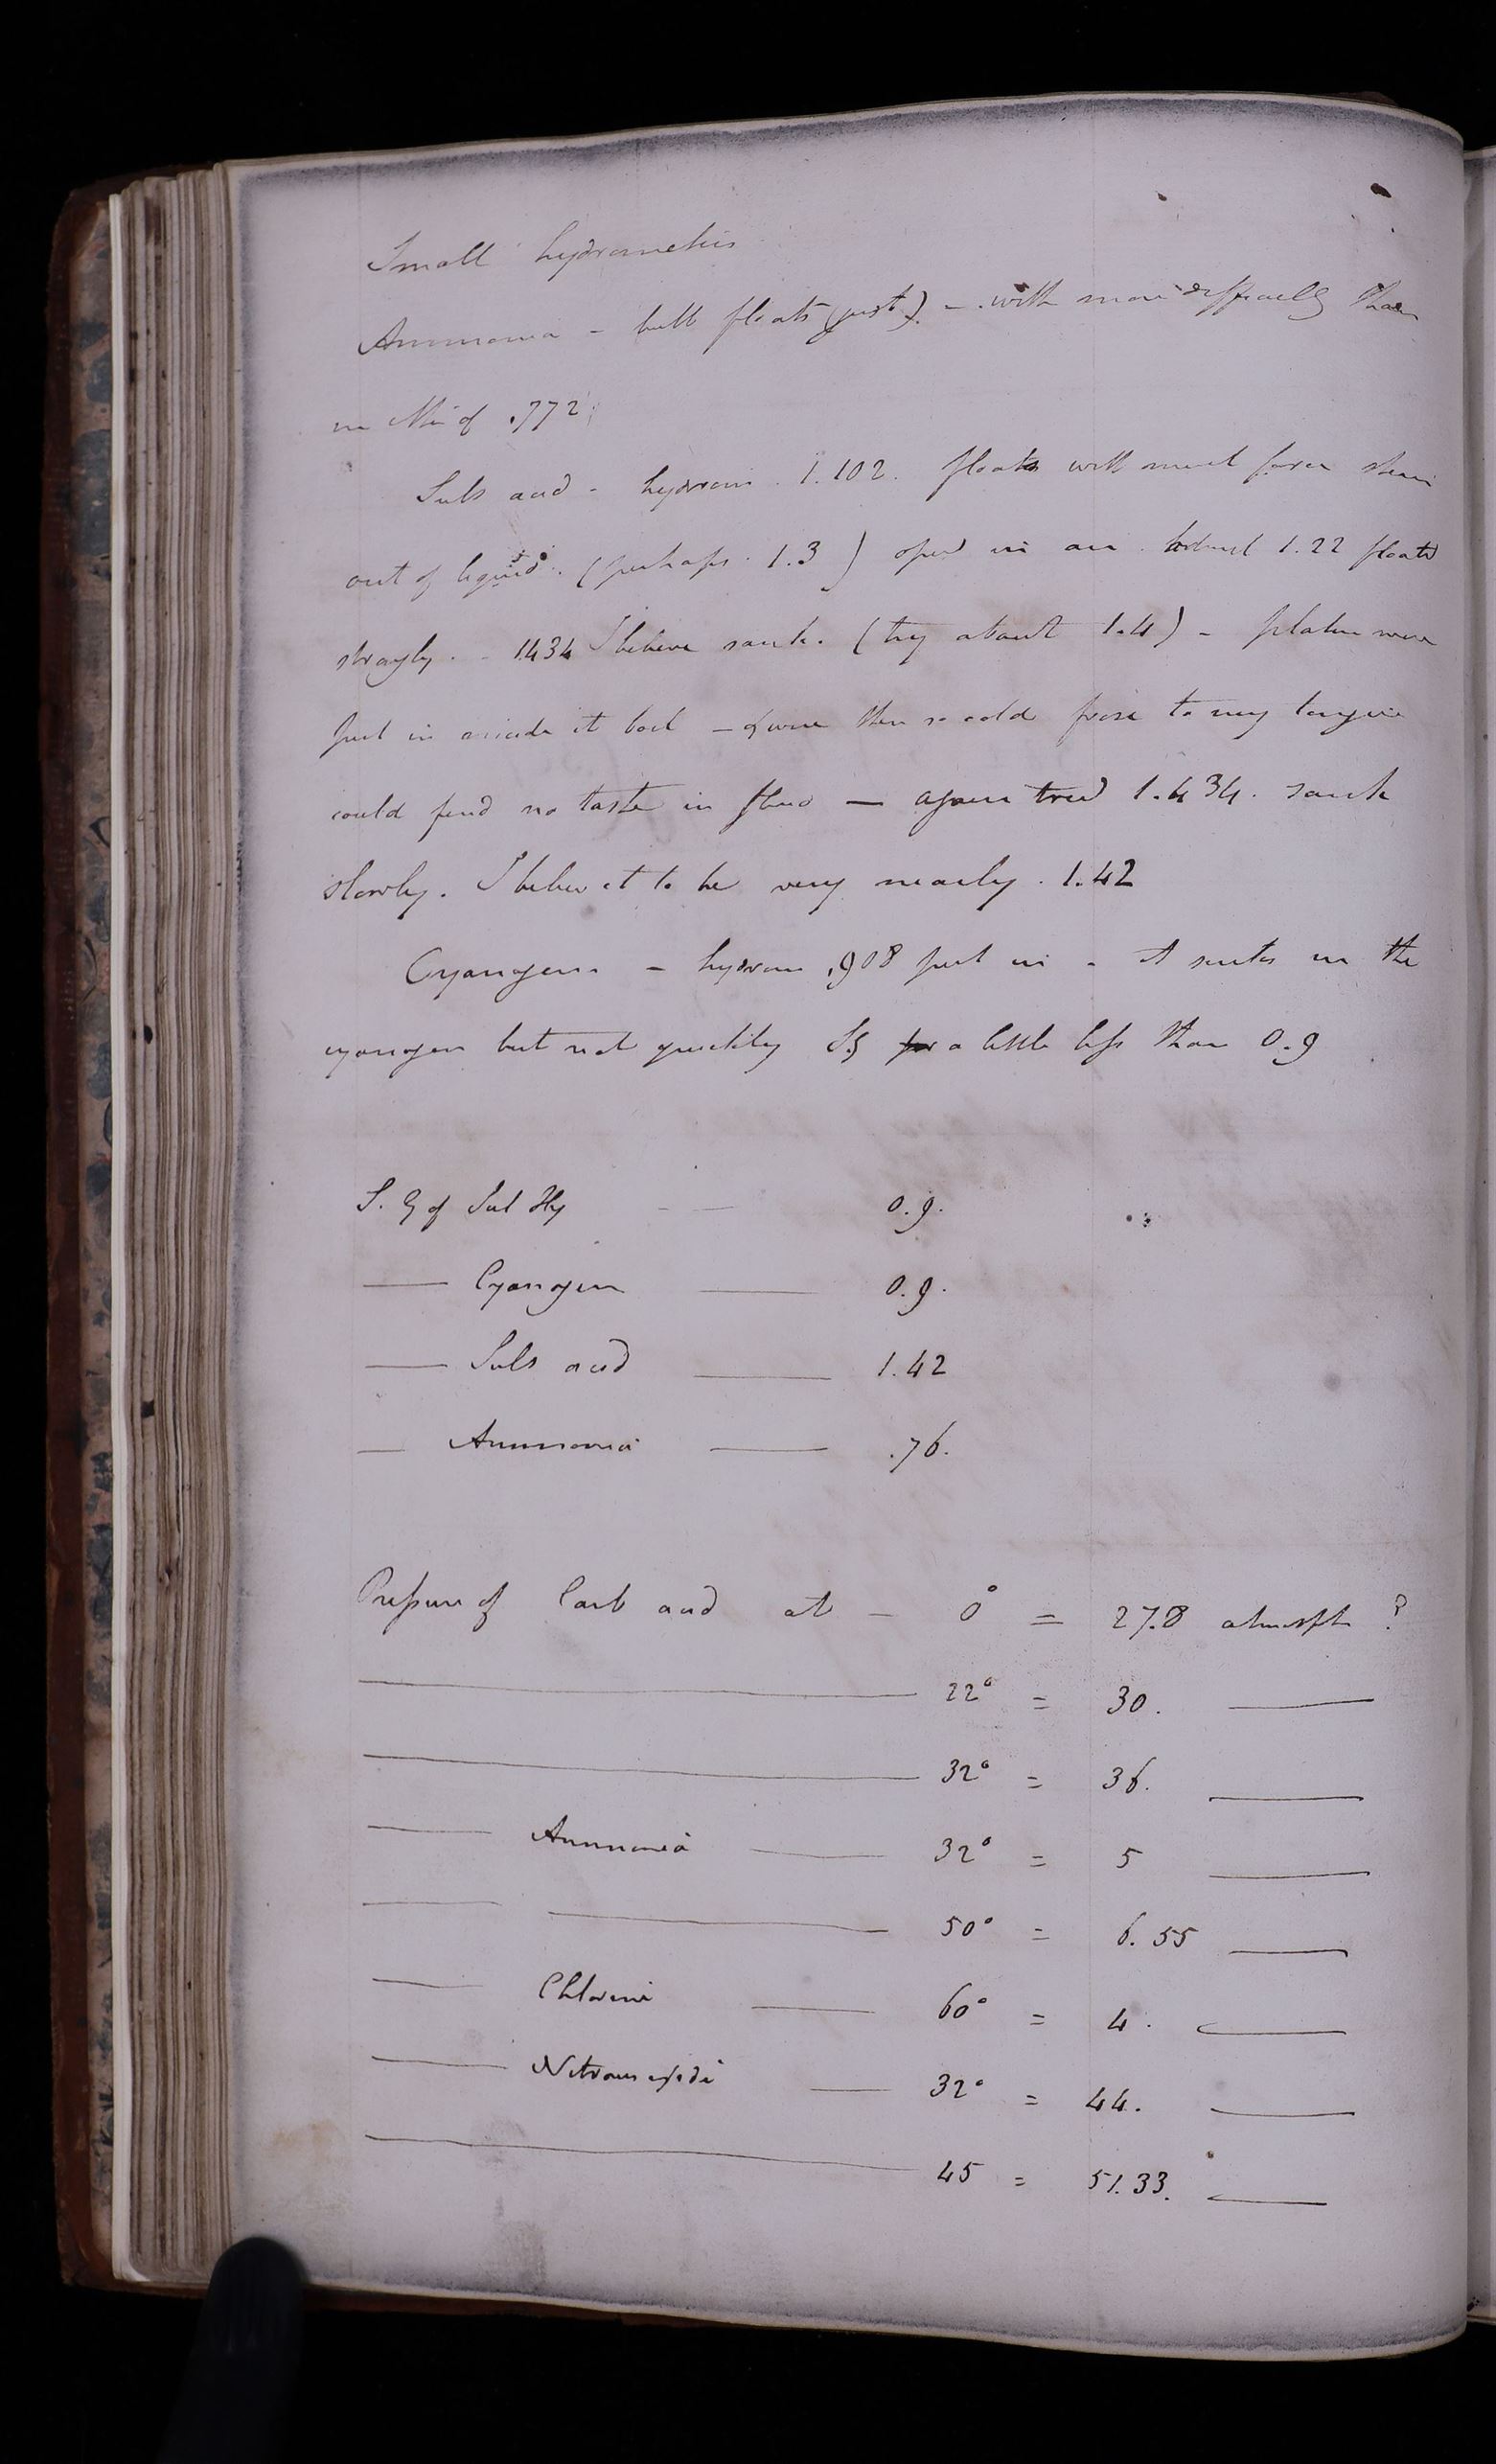 Small hydrometers
Ammonia - bulb floats (just) - with more difficulty than
in Mix of .772
Suls acid - hydrom 1.102. floats with much force
out of liquid. (perhaps 1.3) open in air. 1.22 floats
strongly - 1.434 I believe sank. (try about 1.4) - platina wire
put in made it boil - & wire then so cold froze to my tongue
could find no taste in fluid — again tried 1.434. sank
slowly. I believe it to be very nearly. 1.42
Cyanogen - hydrom .908 put in - it sinks in the
cyanogen but not quickly S.G a little less than 0.9
S. G of Sul Hy - — 0.9.
— Cyanogen — 0.9.
— Suls acid — 1.42
— Ammonia — .76.
Pressure of Carb acid at — 0° = 27.8 atmosph ?
— 22° = 30. —
— 32° = 36. —
— Ammonia — 32° = 5 —
— — 50° = 6.55 —
— Chlorine — 60° = 4. —
— Nitrous oxide — 32° = 44. —
— 45 = 51.33. —